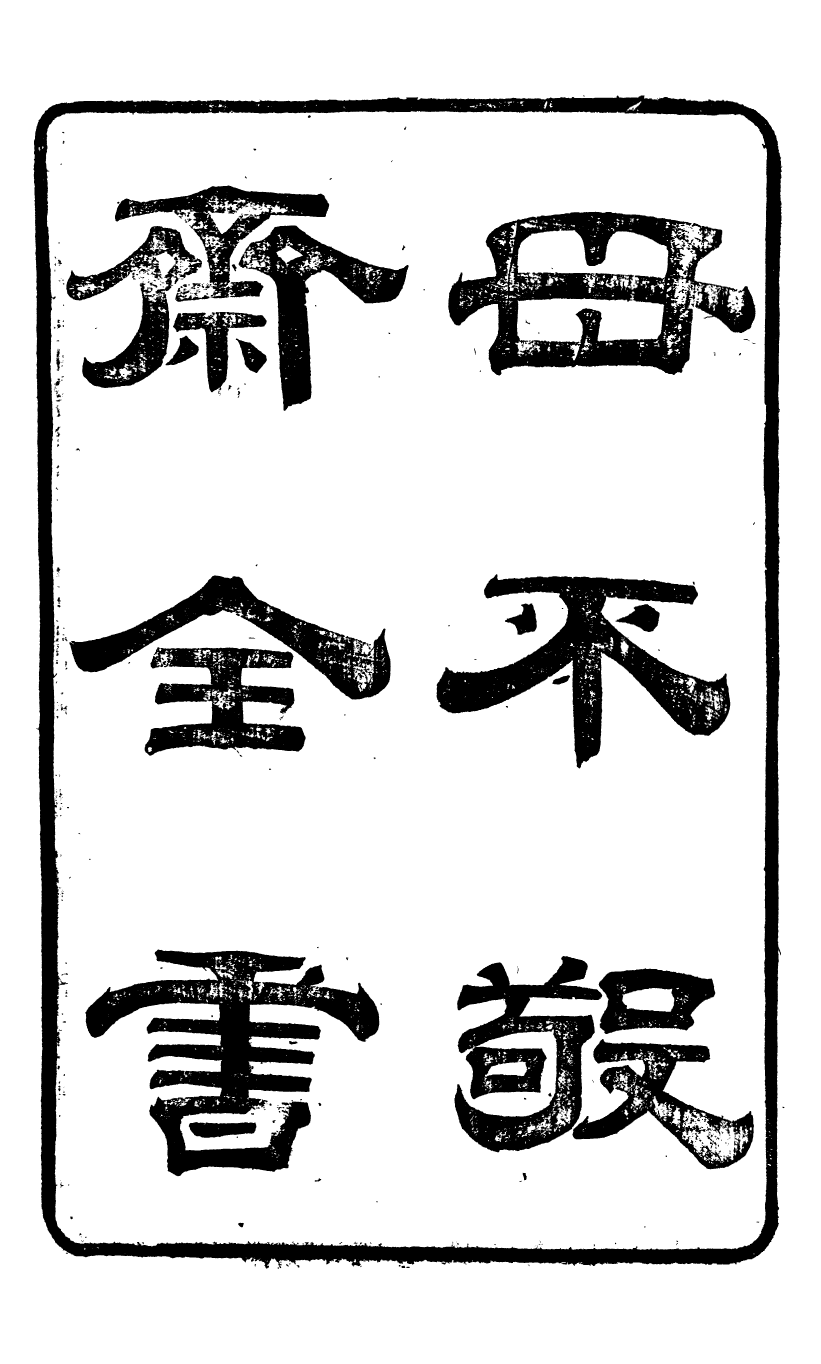 毋不敬
齋全書